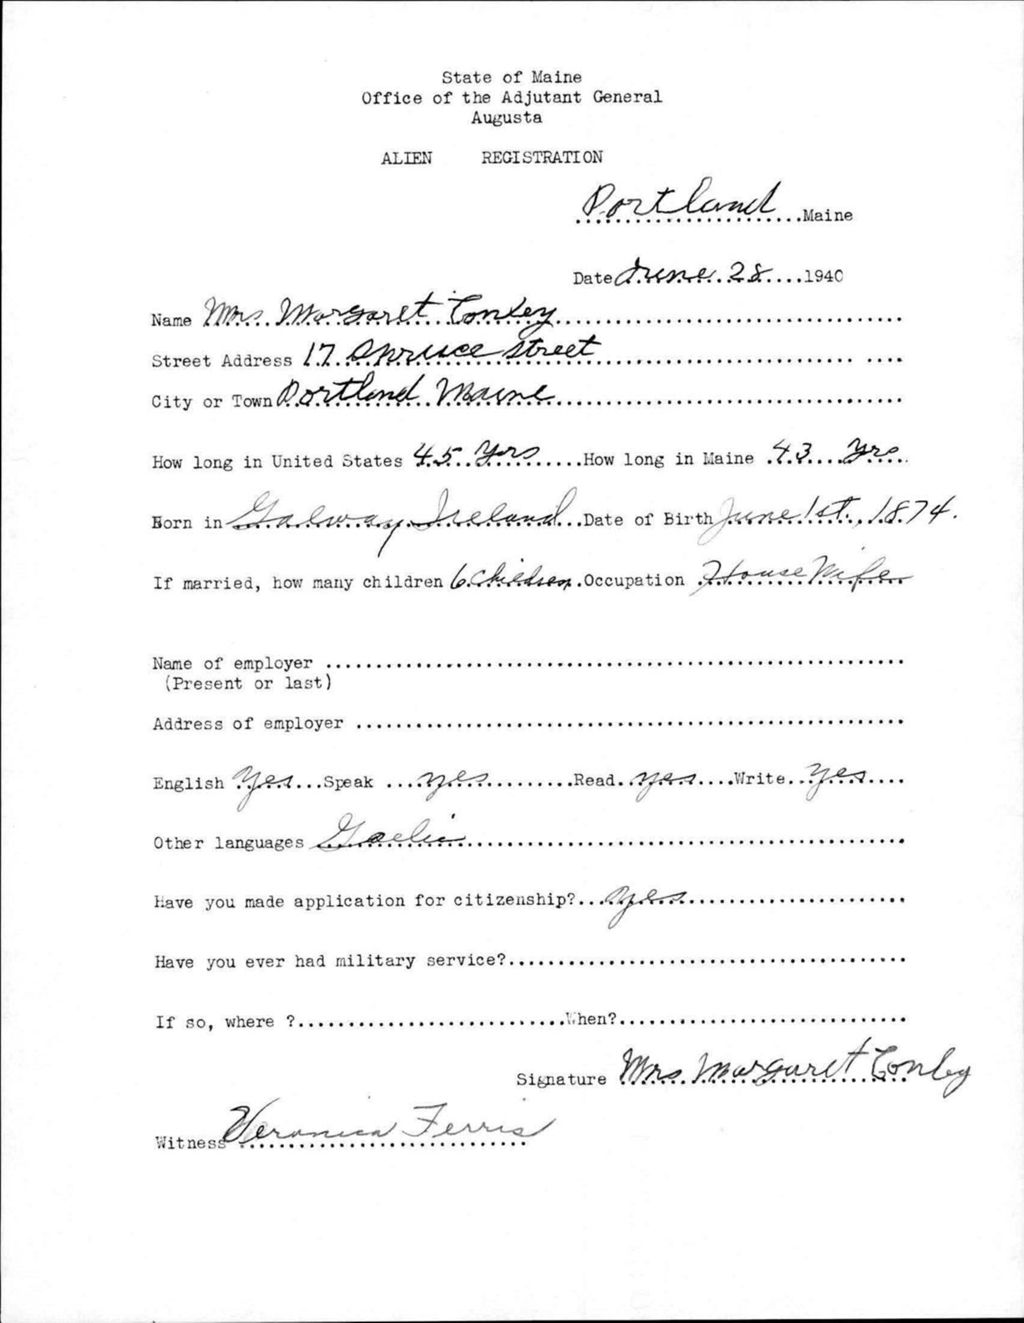 State of Maine
Office of the Adjutant General
Augusta
ALIEN REGISTRATION
Portland Maine
Date June 28 1940
Name Mrs. Margaret Conley
Street Address 17 Spruce Street
City or Town Portland Maine
How long in United States 45 Yrs How long in Maine 43 Yrs
Born in Galway Ireland Date of Birth June 1st, 1874.
If married, how many children 6 Children Occupation House Wife
Name of employer
(Present or last)
Address of employer
English Yes Speak yes Read yes Write yes
Other languages Gaelic
Have you made application for citizenship? Yes
Have you ever had military service?
If so, where ? When?
Signature Mrs. Margaret Conley
Witness Veronica Ferris